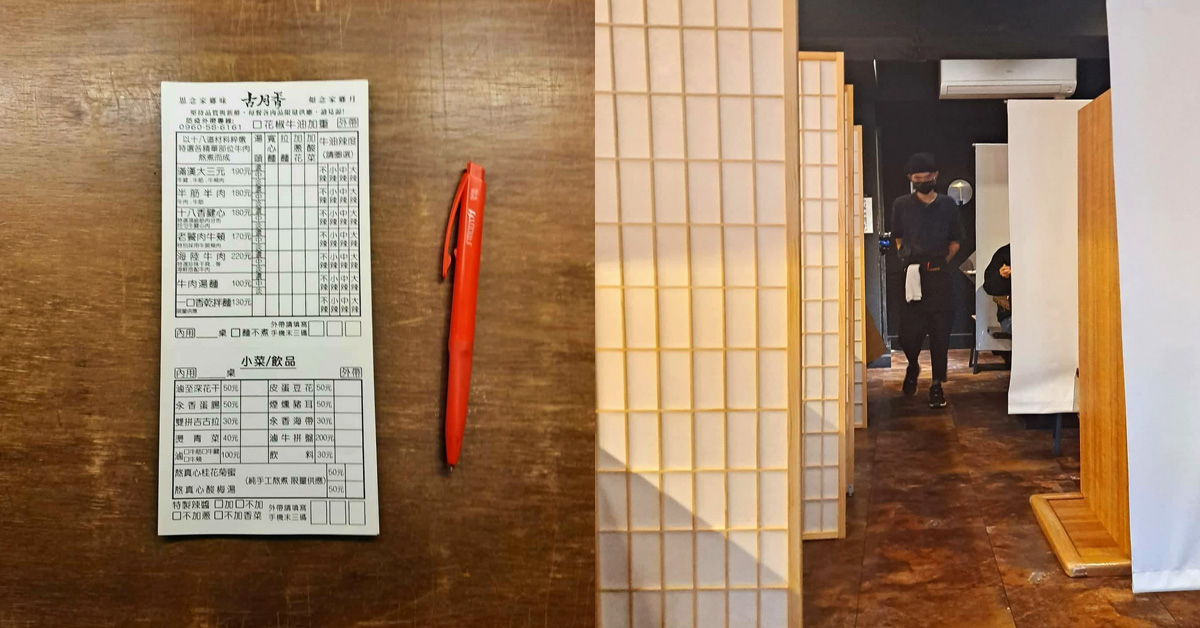 思念家鄉味 古月香 如念家鄉月
堅持品質與新鮮，每餐各肉品限量供應，請見諒！
防疫外帶專線：
0960-58-6161 □花椒牛油加重 外帶
以十八道材料粹燉
特選各精華部位牛肉
熬煮而成
湯頭 寬心麵 拉麵 加蔥花 加酸菜 牛油辣度
(請圈選)
滿漢大三元 190元 不辣 小辣 中辣 大辣
半筋半肉 180元 不辣 小辣 中辣 大辣
牛肉、牛筋
十八香腱心 180元 不辣 小辣 中辣 大辣
老饕肉牛頰 170元 不辣 小辣 中辣 大辣
海陸牛肉 220元 不辣 小辣 中辣 大辣
牛肉湯麵 100元 不辣 小辣 中辣 大辣
一口香乾拌麵 130元 不辣 小辣 中辣 大辣
限量供應
內用____桌 □麵不煮 外帶請填寫
手機末三碼
小菜/飲品
內用 桌 外帶
滷至深花干 50元 皮蛋豆花 50元
永香蛋腸 50元 煙燻豬耳 50元
雙拼吉古拉 30元 永香海帶 30元
燙青菜 40元 滷牛拼盤 200元
滷 □牛筋□牛腱 100元 飲料 30元
熬真心桂花菊蜜 50元
(純手工熬煮 限量供應)
熬真心酸梅湯 50元
特製辣醬 □加 □不加 外帶請填寫
□不加蔥 □不加香菜 手機末三碼